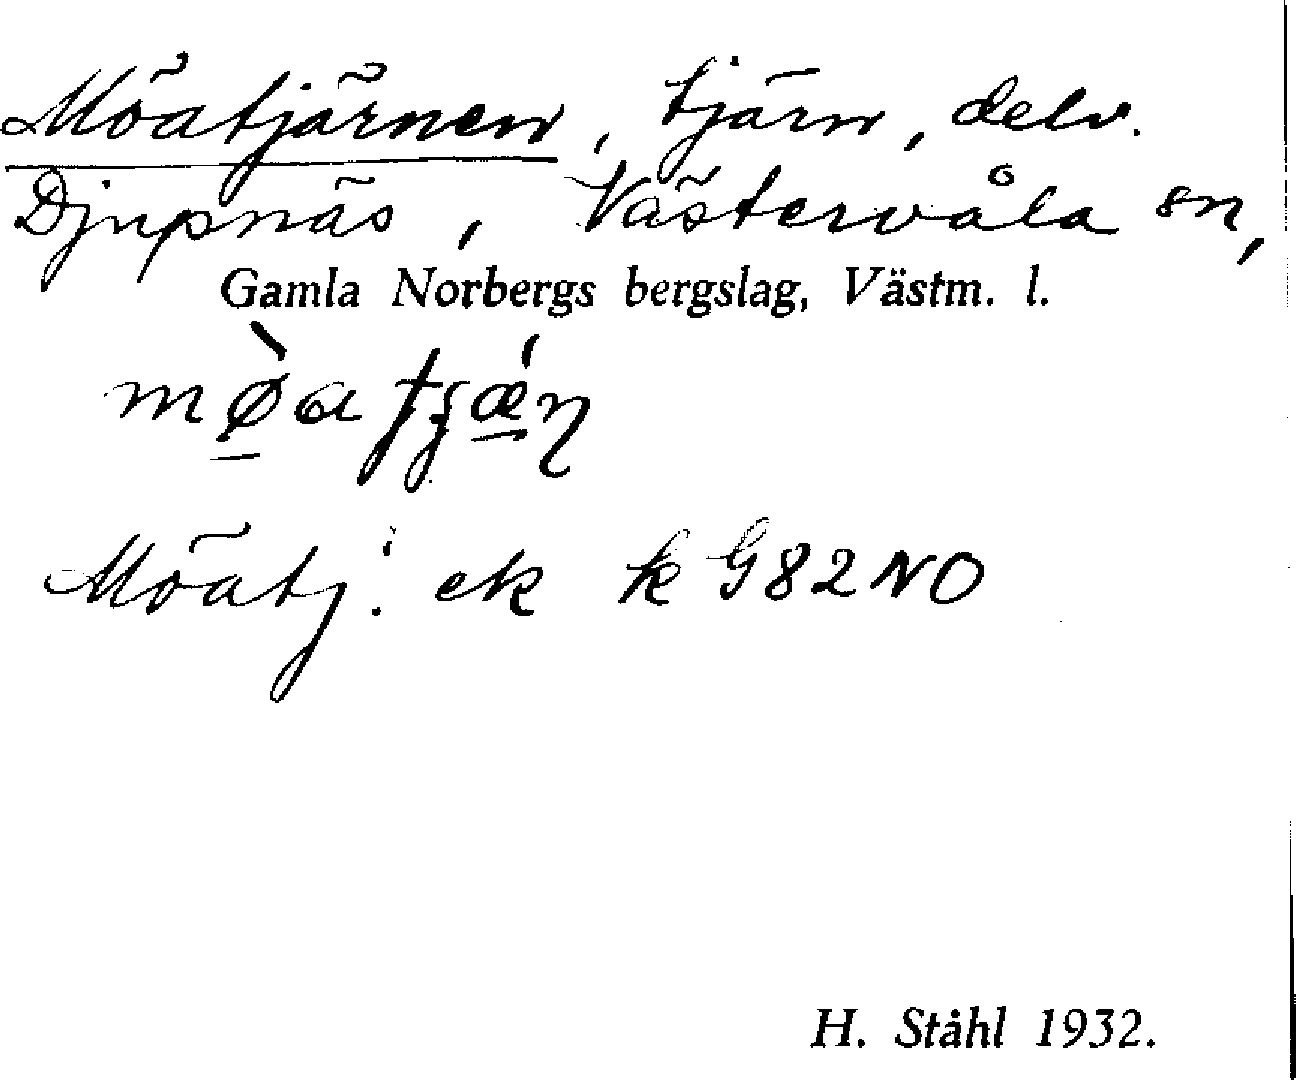 Möatjärnen, tjärn, delv.
Djupnäs, Västervåla sn,
Gamla Norbergs bergslag, Västm. l.
mø̀a tʒǽn
Möatj. ek k G82NO
H. Ståhl 1932.